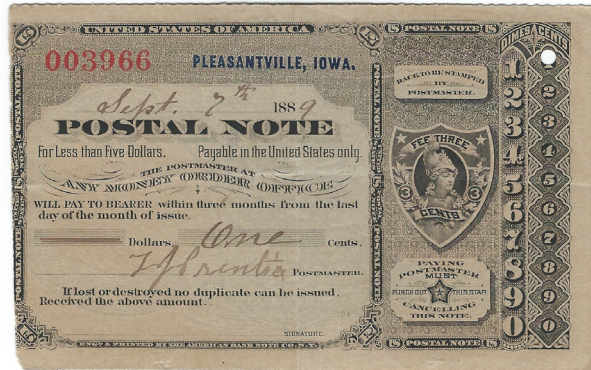 UNITED STATES OF AMERICA
US POSTAL NOTE US
DIMES CENTS
003966
PLEASANTVILLE, IOWA.
Sept. 7th 1889
POSTAL NOTE
For Less than Five Dollars. Payable in the United States only.
THE POSTMASTER AT
ANY MONEY ORDER OFFICE
WILL PAY TO BEARER within three months from the last
day of the month of issue.
Dollars, One Cents.
POSTMASTER.
If lost or destroyed no duplicate can be issued.
Received the above amount.
SIGNATURE.
ENG'D & PRINTED BY THE AMERICAN BANK NOTE CO. N.Y.
BACK TO BE STAMPED
BY
POSTMASTER.
FEE THREE
3 C
CENTS
PAYING
POSTMASTER
MUST
PUNCH OUT THIS STAR
CANCELLING
THIS NOTE.
US POSTAL NOTE US
1
2
3
4
5
6
7
8
9
0
2
3
4
5
6
7
8
9
0